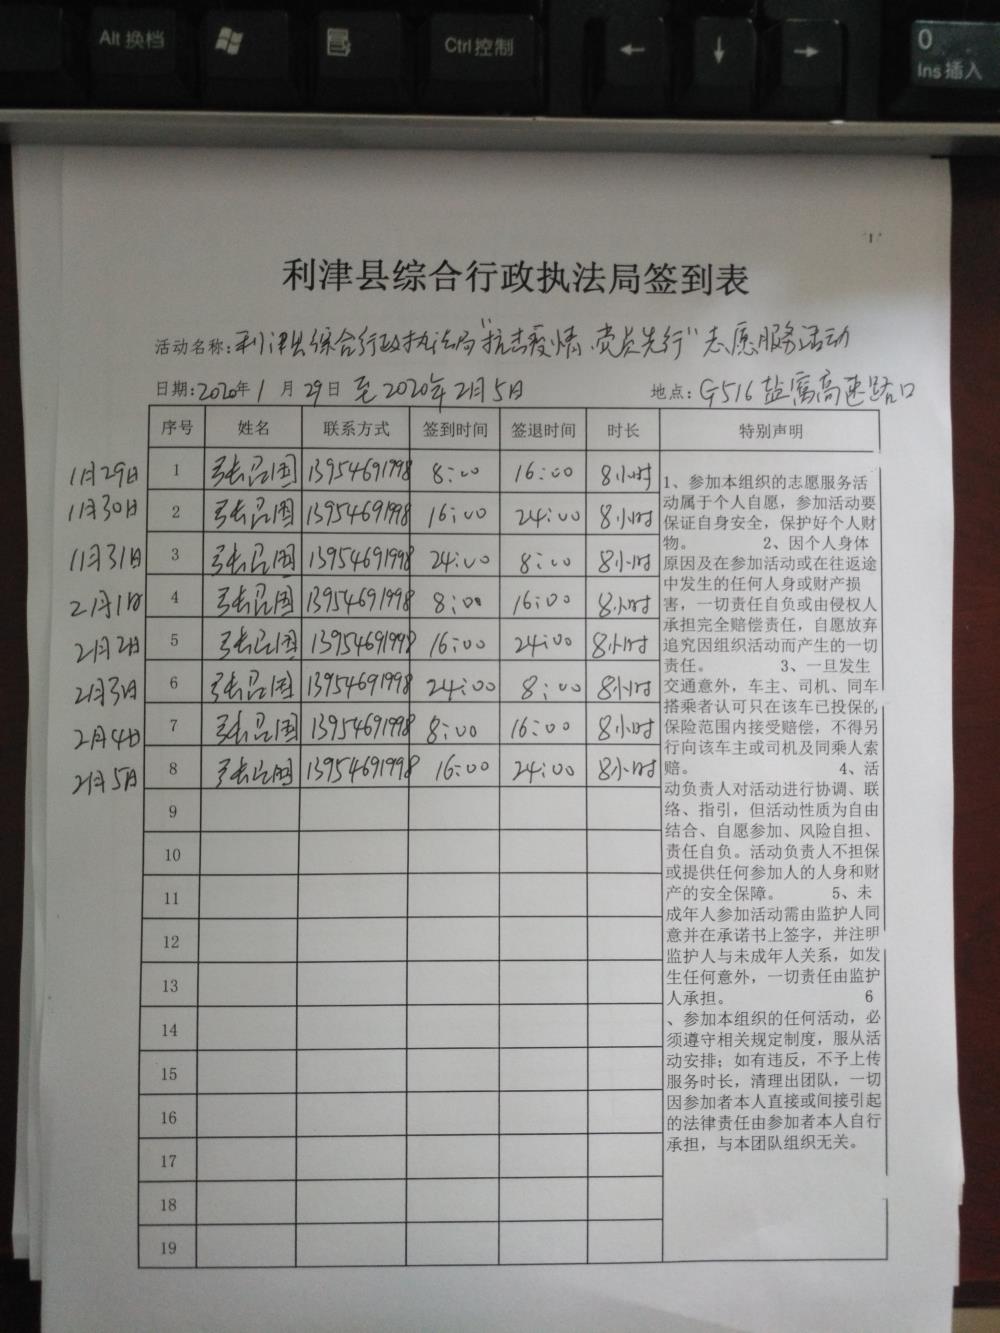 Alt 换档
Ctrl 控制
←
↓
→
0
Ins 插入
利津县综合行政执法局签到表
活动名称:利津县综合行政执法局"抗击疫情、党员先行"志愿服务活动
日期:2020年1月29日至2020年2月5日 地点:G516盐窝高速路口
序号 姓名 联系方式 签到时间 签退时间 时长 特别声明
1月29日 1 张 国 13954691998 8:00 16:00 8小时
1月30日 2 张 国 13954691998 16:00 24:00 8小时
11月31日 3 张 国 13954691998 24:00 8:00 8小时
2月1日 4 张 国 13954691998 8:00 16:00 8小时
2月2日 5 张 国 13954691998 16:00 24:00 8小时
2月3日 6 张 国 13954691998 24:00 8:00 8小时
2月4日 7 张 国 13954691998 8:00 16:00 8小时
2月5日 8 张 国 13954691998 16:00 24:00 8小时
9
10
11
12
13
14
15
16
17
18
19
1、参加本组织的志愿服务活
动属于个人自愿，参加活动要
保证自身安全，保护好个人财
物。 2、因个人身体
原因及在参加活动或在往返途
中发生的任何人身或财产损
害，一切责任自负或由侵权人
承担完全赔偿责任，自愿放弃
追究因组织活动而产生的一切
责任。 3、一旦发生
交通意外，车主、司机、同车
搭乘者认可只在该车已投保的
保险范围内接受赔偿，不得另
行向该车主或司机及同乘人索
赔。 4、活
动负责人对活动进行协调、联
络、指引，但活动性质为自由
结合、自愿参加、风险自担、
责任自负。活动负责人不担保
或提供任何参加人的人身和财
产的安全保障。 5、未
成年人参加活动需由监护人同
意并在承诺书上签字，并注明
监护人与未成年人关系，如发
生任何意外，一切责任由监护
人承担。 6
、参加本组织的任何活动，必
须遵守相关规定制度，服从活
动安排；如有违反，不予上传
服务时长，清理出团队，一切
因参加者本人直接或间接引起
的法律责任由参加者本人自行
承担，与本团队组织无关。